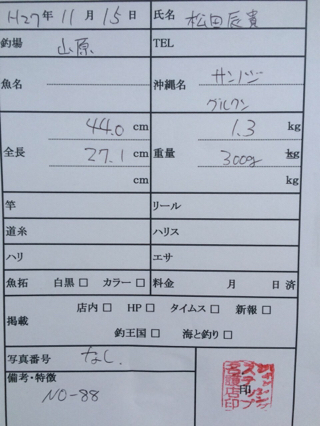 H27年 11月 15日 氏名 松田辰貴
釣場 山原 TEL
魚名 沖縄名 サンノジ
グルクン
44.0 cm 1.3 kg
全長 27.1 cm 重量 300g kg
cm kg
竿 リール
道糸 ハリス
ハリ エサ
魚拓 白黒 □ カラー □ 料金 月 日 済
店内 □ HP □ タイムス □ 新報 □
掲載
釣王国 □ 海と釣り □
写真番号 なし
備考・特徴 印
NO-88